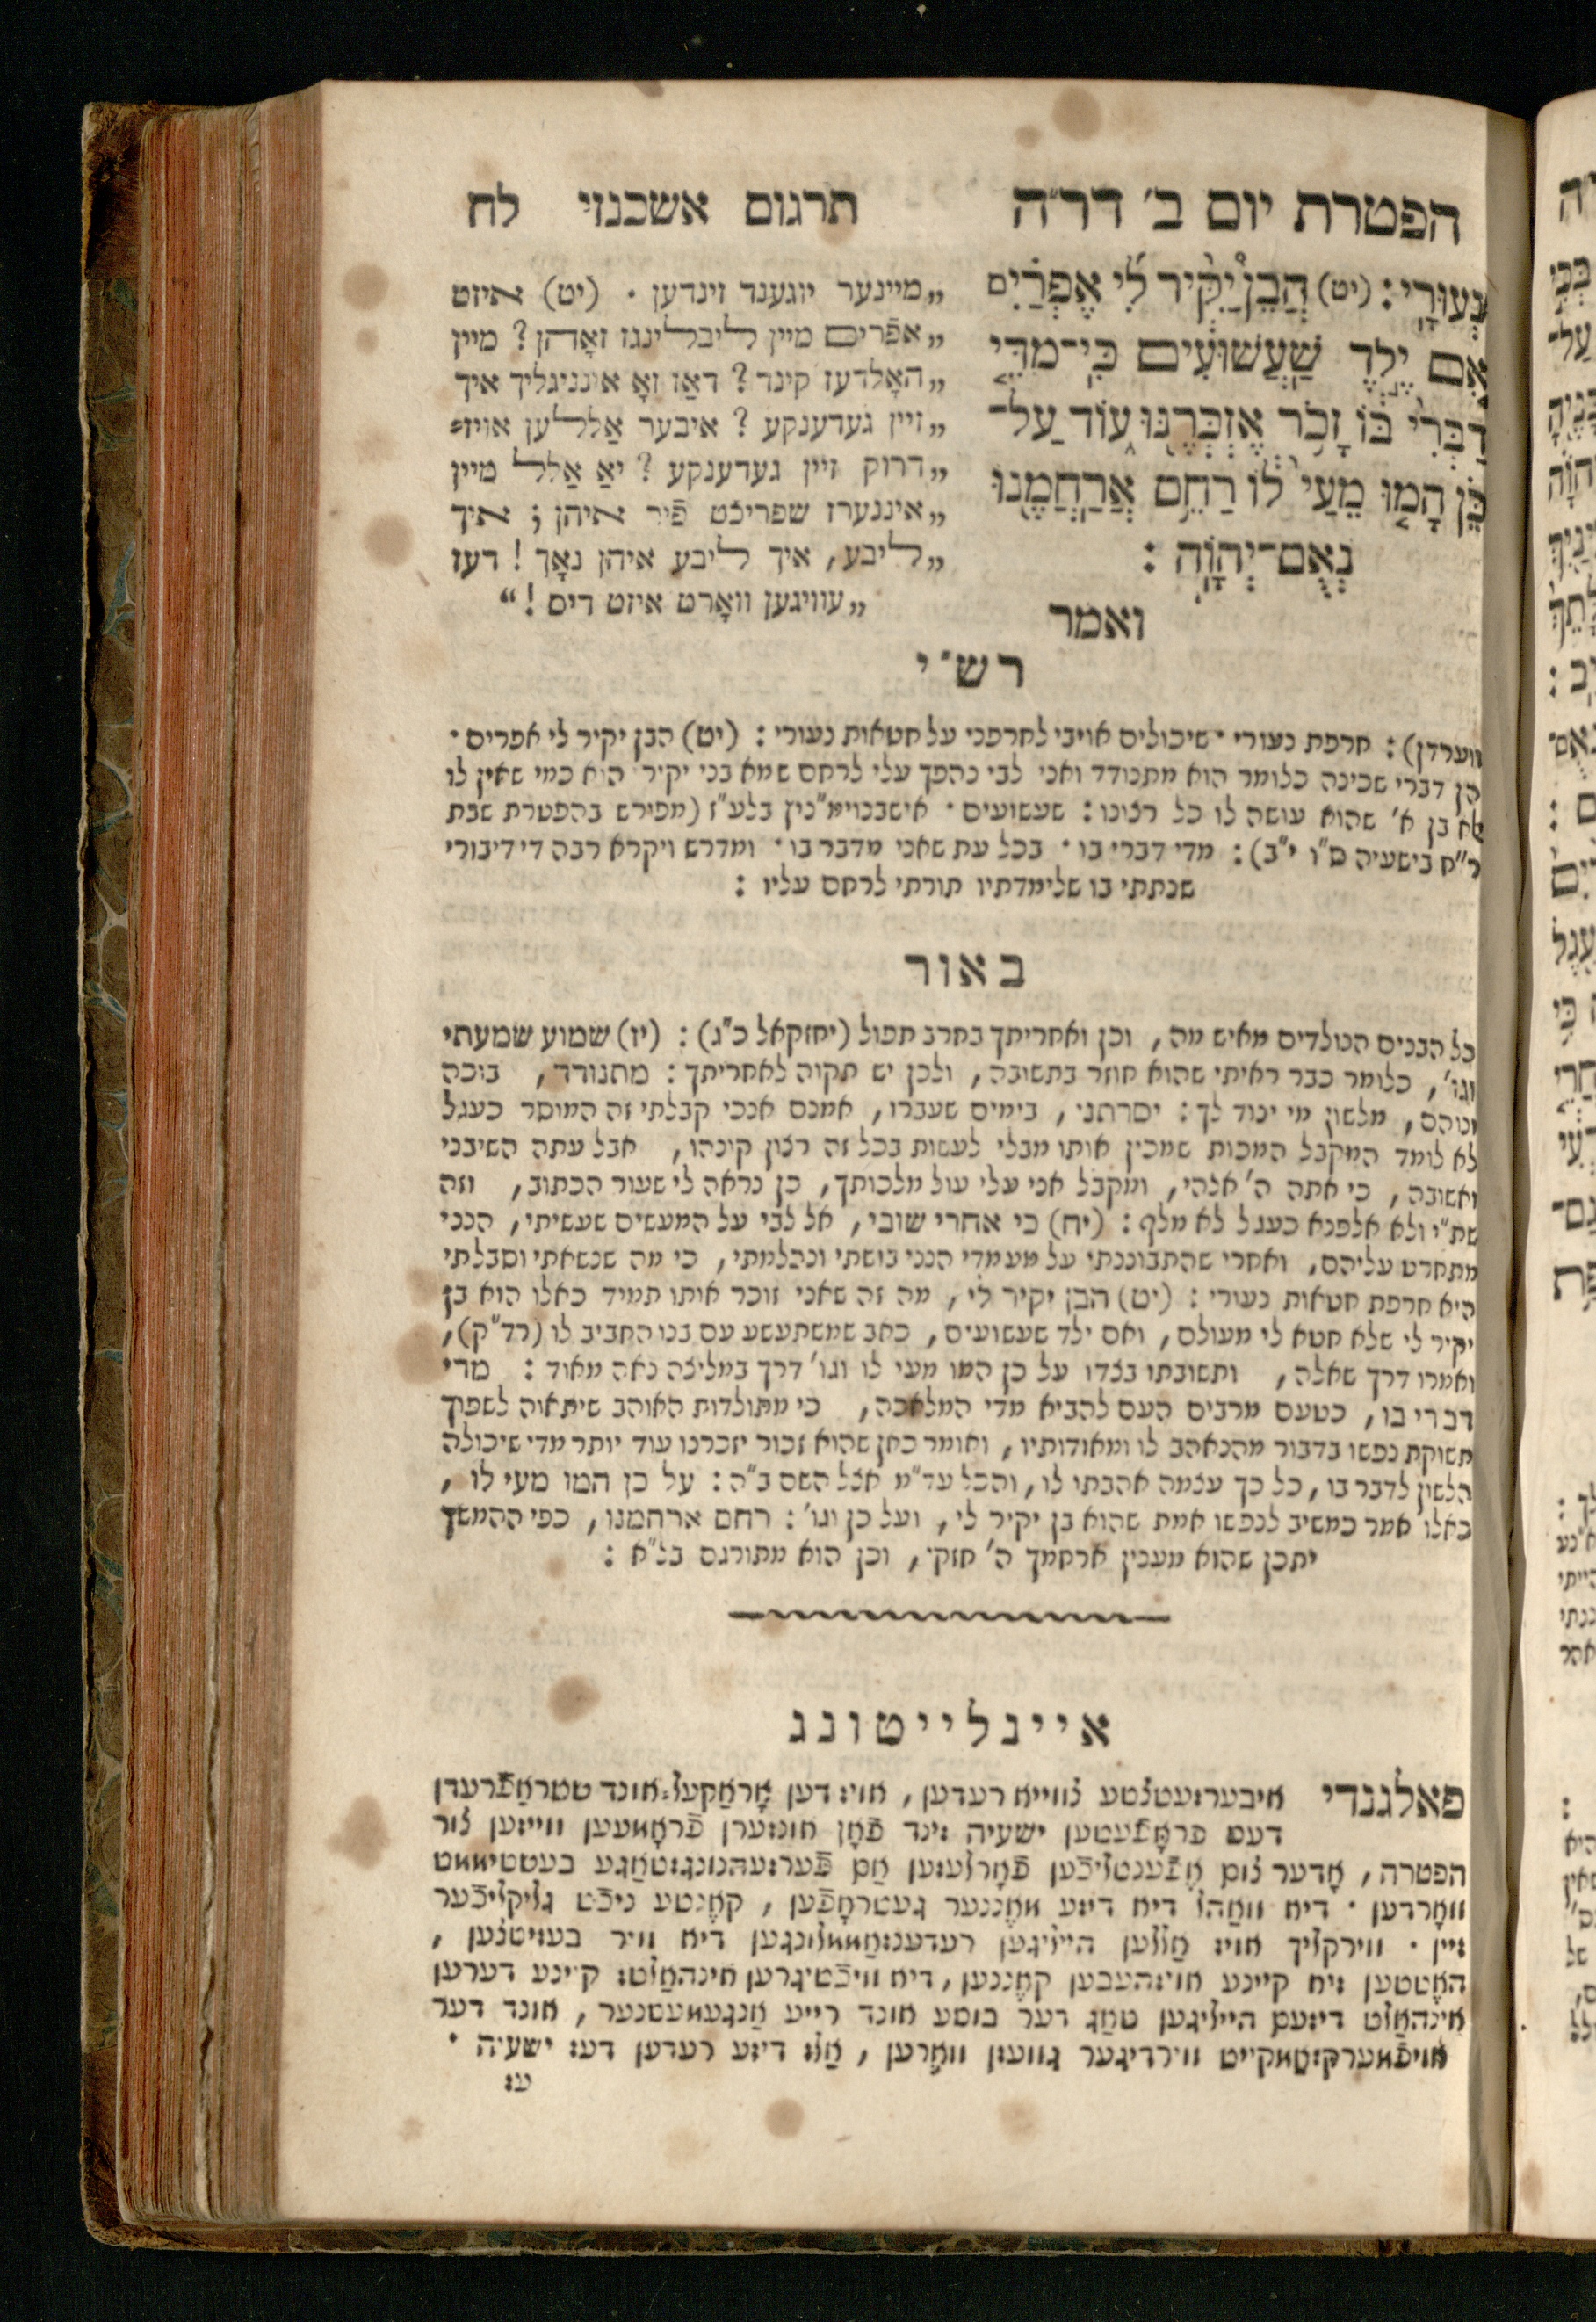 הפטרת יום ב׳ דר״ה
תרגום אשכנזי לח
נְעוּרָי׃ (יט) הֲבֵן יַקִּיר לִי אֶפְרַיִם
אִם יֶלֶד שַׁעֲשׁוּעִים כִּי־מִדֵּי
דַבְּרִי בּוֹ זָכֹר אֶזְכְּרֶנּוּ עוֹד עַל־
כֵּן הָמוּ מֵעַי לוֹ רַחֵם אֲרַחֲמֶנּוּ
נְאֻם־יְהוָה :
ואמר
„מיינער יוגענד זינדען · (יט) איזט
„אפֿרים מיין ליבלינגז זאָהן? מיין
„האָלדעז קינד? דאַז זאָ אינניגליך איך
„זיין געדענקע? איבער אַללען אויז⸗
„דרוק זיין געדענקע? יאַ אַלל מיין
„איננערז שפריכט פֿיר איהן; איך
„ליבע, איך ליבע איהן נאָך! דעז
„עוויגען וואָרט איזט דיס!“
רש״י
ווערדן): חרפת נעורי · שיכולים אויבי לחרפני על חטאות נעורי : (יט) הבן יקיר לי אפרים ·
הן דברי שכינה כלומר הוא מתנודד ואני לבי נהפך עלי לרחם שמא בני יקיר הוא כמי שאין לו
לא בן א׳ שהוא עושה לו כל רצונו : שעשועים · אישבנויימ״נץ בלע״ז (מפורש בהפטרת שבת
ר״ח בישעיה ס״ו י״ב): מדי דברי בו · בכל עת שאני מדבר בו · ומדרש ויקרא רבה די דיבורי
שנתתי בו שלימדתיו תורתי לרחם עליו :
באור
כל הבנים הנולדים מאיש מה, וכן ואחריתך בחרב תפול (יחזקאל כ״ג) : (יז) שמוע שמעתי
וגו׳, כלומר כבר ראיתי שהוא חוזר בתשובה, ולכן יש תקוה לאחריתך : מתנודד, בוכה
ונוהם, מלשון מי ינוד לך : יסרתני, בימים שעברו, אמנם אנכי קבלתי זה המוסר כעגל
לא לומד המקבל המכות שמכין אותו מבלי לעשות בכל זה רצון קונהו, אבל עתה השיבני
ואשובה, כי אתה ה׳ אלהי, ומקבל אני עלי עול מלכותך, כן נראה לי שעור הכתוב, וזה
שת״י ולא אלפנא כעגל לא מלף : (יח) כי אחרי שובי, אל לבי על המעשים שעשיתי, הנני
מתחרט עליהם, ואחרי שהתבוננתי על מעמדי הנני בושתי ונכלמתי, כי מה שנשאתי וסבלתי
היא חרפת חטאות נעורי : (יט) הבן יקיר לי, מה זה שאני זוכר אותו תמיד כאלו הוא בן
יקיר לי שלא חטא לי מעולם, ואם ילד שעשועים, כאב שמשתעשע עם בנו החביב לו (רד״ק),
ואמרו דרך שאלה, ותשובתו בצדו על כן המו מעי לו וגו׳ דרך במליצה נאה מאוד : מדי
דברי בו, כטעם מרבים העם להביא מדי המלאכה, כי מתולדות האוהב שיתאוה לשפוך
תשוקת נפשו בדבור מהנאהב לו ומאודותיו, ואומר כאן שהוא זכור יזכרנו עוד יותר מדי שיכולה
הלשון לדבר בו, כל כך עצמה אהבתו לו, והכל עד״מ אצל השם ב״ה : על כן המו מעי לו,
כאלו אמר כמשיב לנפשו אמת שהוא בן יקיר לי, ועל כן וגו׳ : רחם ארחמנו, כפי ההמשך
יתכן שהוא מענין ארחמך ה׳ חזקי, וכן הוא מתורגם בל״א :
איינלייטונג
פאלגנדי איבערזעטצטע צווייא רעדען, אויז דען אָראַקעל⸗אונד שטראַפֿרעדן
דעס פּראָפֿעטען ישעיה זינד פֿאָן אונזערן פֿראָממען ווייזען צור
הפטרה, אָדער צום אָפֿענטליכֿען פֿאָרלעזען אַם פֿערזעהנונגזטאַגע בעשטיממט
וואָרדען · דיא וואַהל דיא דיזע מאֶננער געטראָפֿען, קאָנטע ניכֿט גליקליכֿער
זיין · ווירקליך אויז אַללען הייליגען רעדענזאַממלונגען דיא וויר בעזיטצען,
האֶטטען זיא קיינע אויזהעבען קאֶננען, דיא וויכֿטיגרען אינהאַלטז קיינע דערען
אינהאַלט דיזעם הייליגען טאַג דער בוסע אונד רייע אַנגעמעסנער, אונד דער
אויפֿמערקזאַמקייט ווירדיגער געוועזן וואֶרען, אַלז דיזע רעדען דעז ישעיה ·
עז